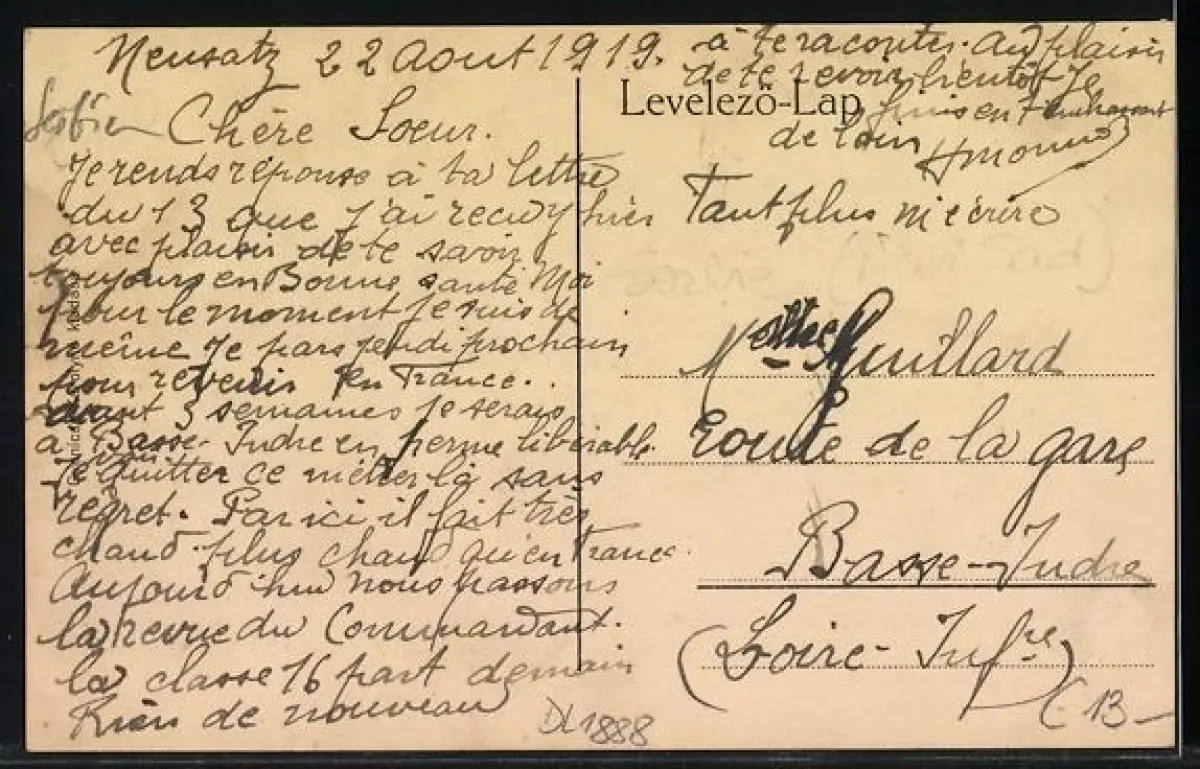 Neusatz 22 Aout 1919.
Serbien
Chère Soeur.
Je rends réponse à ta lettre
du 13 que j'ai recu hier
avec plaisir de te savoir
toujours en Bonne santé Moi
pour le moment je suis de
même je pars jeudi prochain
pour revenir en France.
avant 3 semaines je serais
à Basse-Indre en perme libérable.
Je quitter ce métier là sans
regret. Par ici il fait très
chaud plus chaud qu'en France.
Aujourd hui nous passons
la revue du Commandant.
la classe 16 part demain
Rien de nouveau
à te raconter. Au plaisir
de te revoir bientôt Je
finis en t'embrassant
de loin
Levelező-Lap
Tant plus m'écrire
Serbie (Novi Sad)
Melle Guillard
Route de la gare
Basse-Indre
(Loire-Infre)
DL1888
C 13-